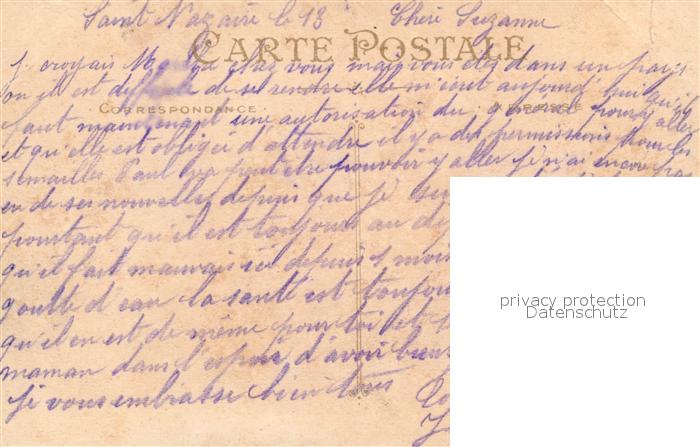 Saint Nazaire le 13 Chère Suzanne
CARTE POSTALE
je croyais chez vous mais vous êtes dans un pays
ou il est difficile de se rendre elle m'écrit aujourd'hui qu'il
CORRESPONDANCE
faut maintenant une autorisation du général pour y aller
et qu'elle est obligée d'attendre il y a des permissions pour les
semailles Paul va peut etre pouvoir y aller je n'ai encore pas
eu de ses nouvelles depuis que je
pourtant qu'il est toujours au
qu'il fait mauvais ici depuis 1 mois
goutte d'eau la santé est toujours
qu'il en est de même pour toi et
maman dans l'espoir d'avoir bien
je vous embrasse bien tous
privacy protection
Datenschutz